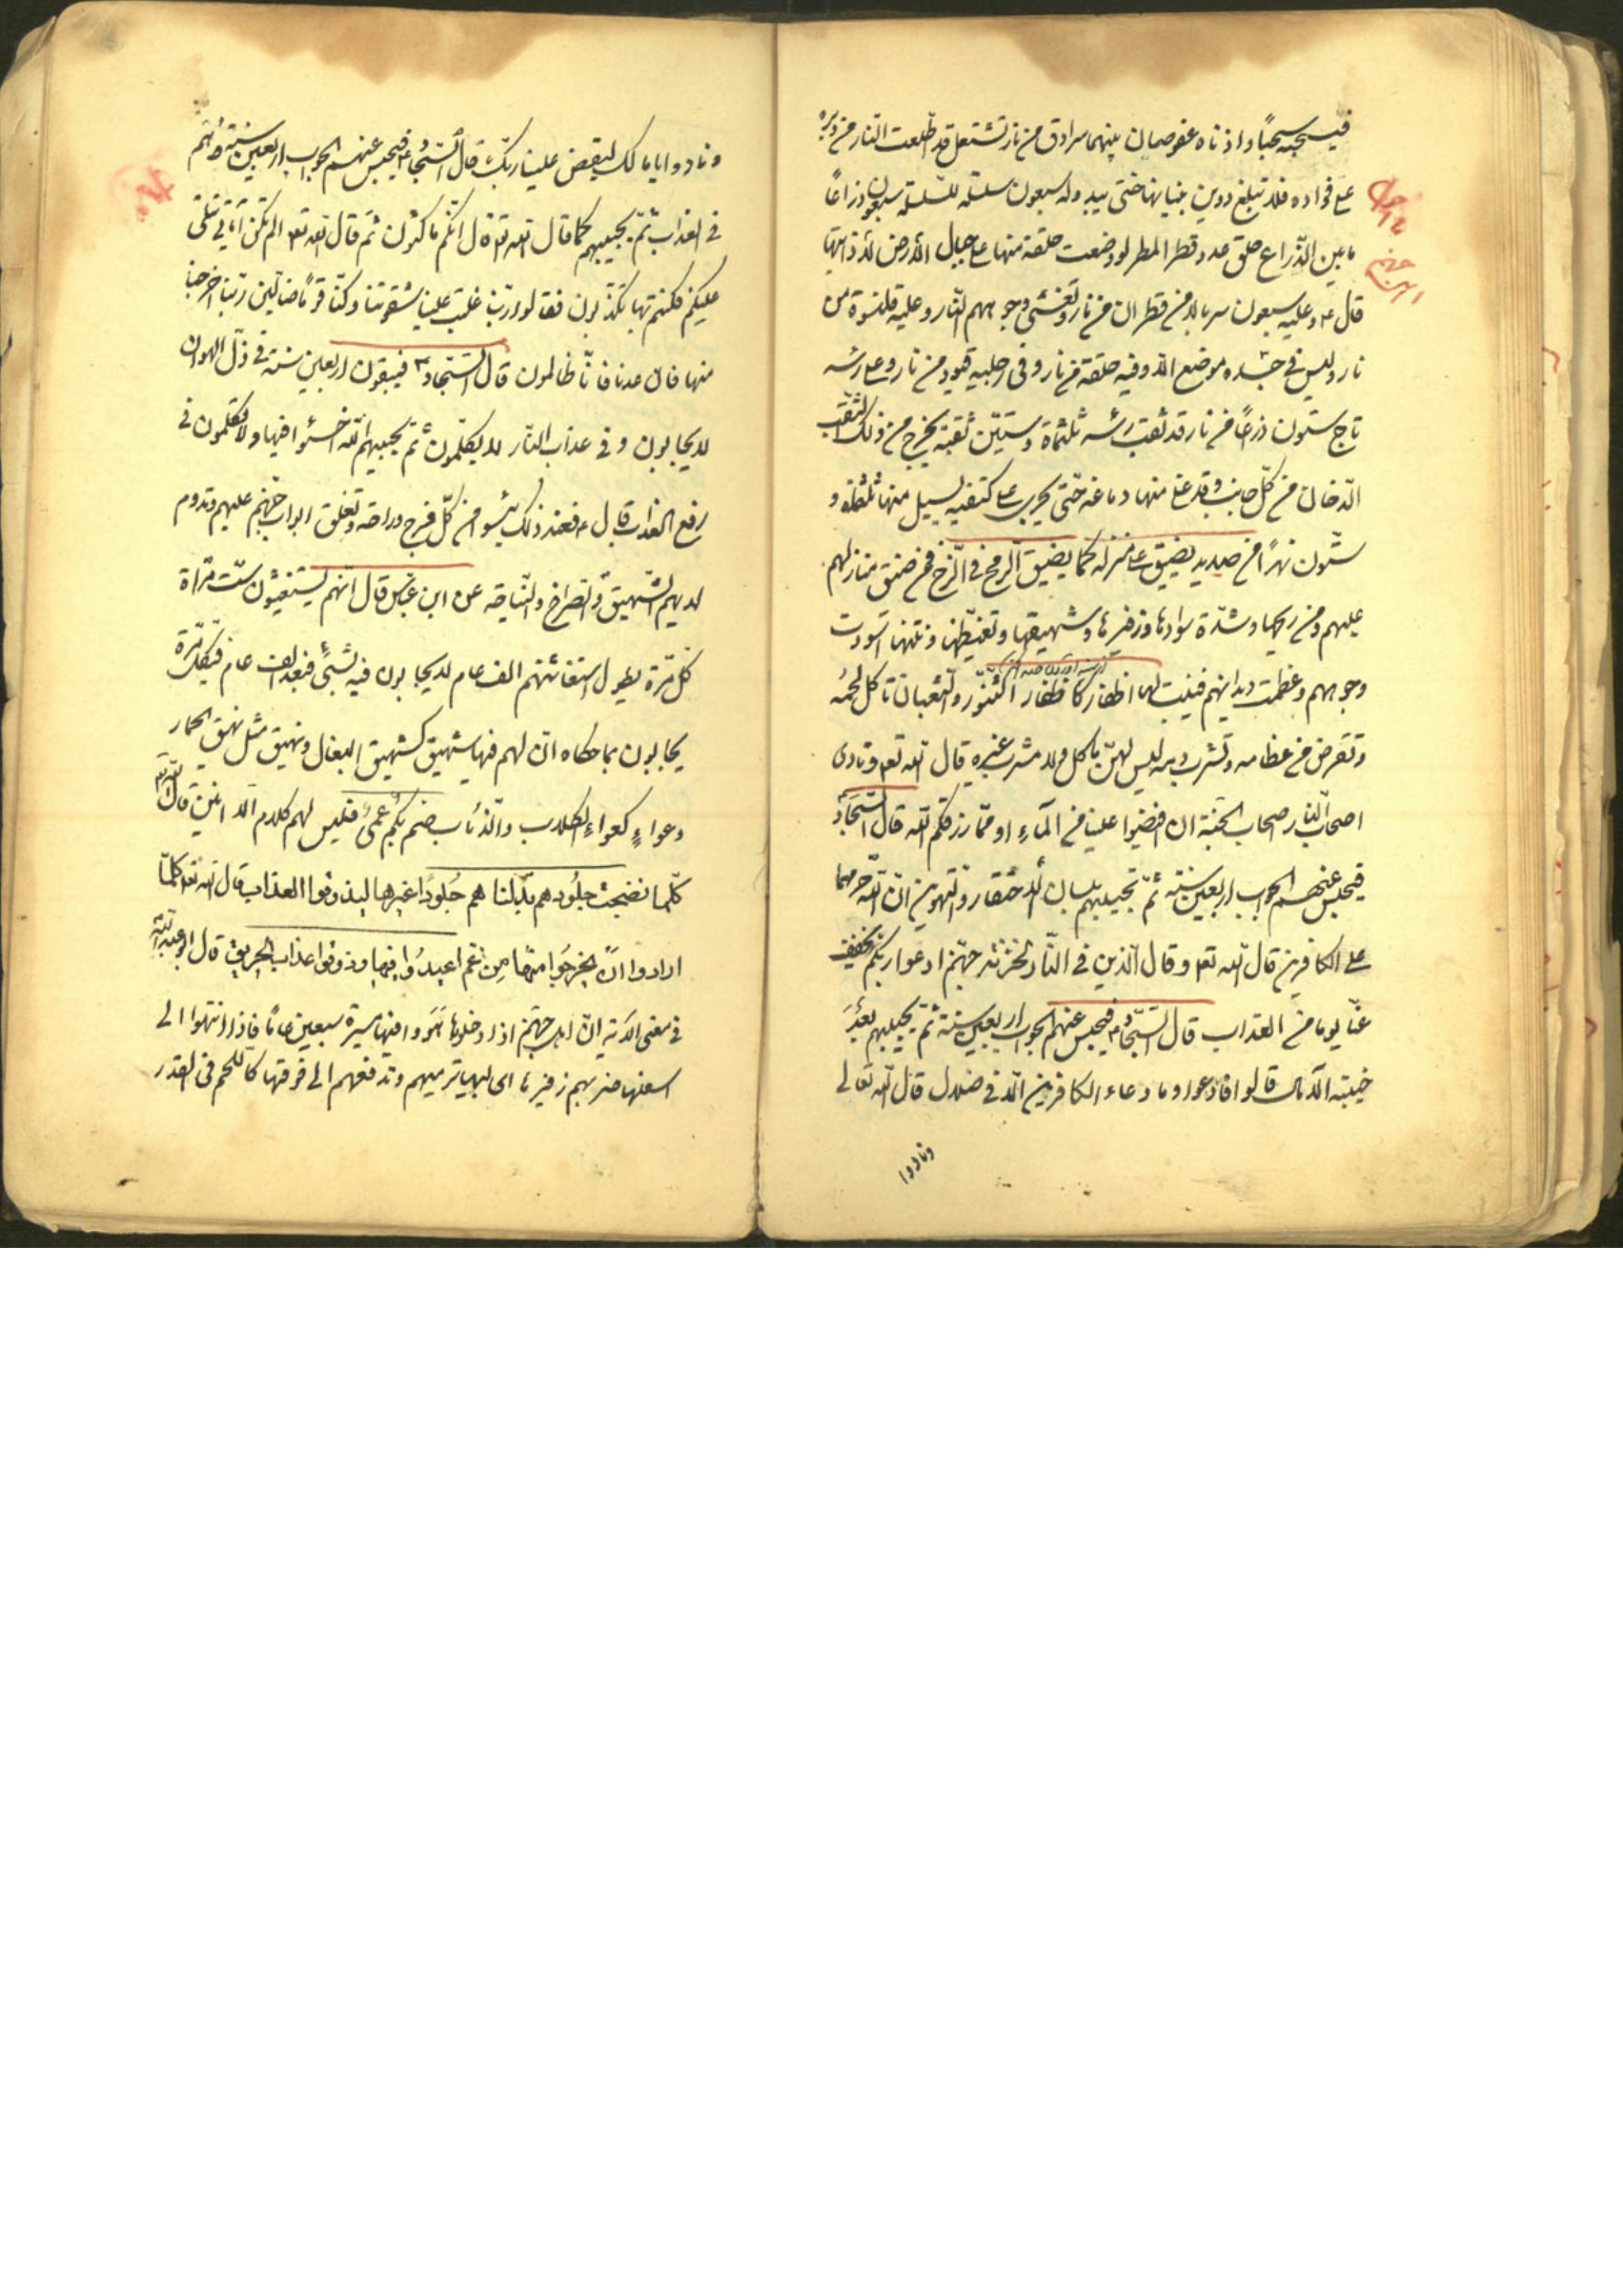 فيسحبه سحبًا واذناه عضوضان بينهما سرادق من نار تشتعل قد اطلعت النار من دبره
على فؤاده فلا تبلغ دوين بنيانها حتى يبد وله سبعون سلسلة للسلسلة سبعون ذراعًا
ما بين الذراع حلق عدد قطر المطر لو وضعت حلقة منها على جبال الأرض لأذابتها
قال ع وعليه سبعون سربالا من قطران من نار وتغشى وجوههم النار وعليه قلنسوة من
نار وليس في جسده موضع الا وفيه حلقة من نار وفى رجليه قيود من نار وعلى رأسه
تاج ستون ذرعًا من نار قد ثقب رأسه ثلثمائة وستين ثقبة يخرج من ذلك الثقب
الدخان من كل جانب وقد غلا منها دماغه حتى يجرى على كتفيه يسيل منها ثلثمائة و
ستون نهرًا من صديد يضيق على منزله كما يضيق الرمح في الزج فمن ضيق منازلهم
عليهم ومن ريحها وشدة سوادها وزفيرها وشهيقها وتغيظها ونتنها اسودت
وجوههم وعظمت ديدانهم فينبت لها اظفار كاظفار السنور والثعبان تاكل لحمه
وتقرض من عظامه وتشرب دمه ليس لهن ماكل ولا مشرب غيره قال الله تعه ونادى
اصحاب النار اصحاب الجنة ان افيضوا علينا من الماء او مما رزقكم الله قال السجاد
فيحبس عنهم الجواب اربعين سنة ثم تجيبهم بلسان الاحتقار والتهوين ان الله حرمهما
على الكافرين قال الله تعه وقال الذين في النار لخزنة جهنم ادعوا ربكم يخفف
عنا يوما من العذاب قال السجاد ع فيحبس عنهم الجواب اربعين سنة ثم يجيبهم بعد
خيبة الآمال قالوا فادعوا وما دعاء الكافرين الا في ضلال قال الله تعالى
ونادوا
ونادوا يا مالك ليقض علينا ربك قال السجاد ع فيحبس عنهم الجواب اربعين سنة وهم
في العذاب ثم يجيبهم كما قال الله تعه قال انكم ماكثون ثم قال الله تعه الم تكن آياتي تتلى
عليكم فكنتم بها تكذبون فقالوا ربنا غلبت علينا شقوتنا وكنا قومًا ضالين ربنا اخرجنا
منها فان عدنا فانا ظالمون قال السجاد ع فيبقون اربعين سنة في ذل الهوان
لا يجابون وفي عذاب النار لا يكلمون ثم يجيبهم الله اخسئوا فيها ولا تكلمون في
رفع العذاب قال ع فعند ذلك يئسوا من كل فرج وراحة وتغلق ابواب جهنم عليهم وتدوم
لديهم الشهيق والصراخ والنياحة عن ابن عباس قال انهم يستغيثون ست مراة
كل مرة يطول استغاثتهم الف عام لا يجابون فيه بشيئ فبعد الف عام في كل مرة
يجابون بما حكاه ان لهم فيها شهيق كشهيق البغال ونهيق مثل نهيق الحمار
وعواء كعواء الكلاب والذئاب صم بكم عمى فليس لهم كلام الا انين قال الله تعه
كلما نضجت جلودهم بدلناهم جلودًا غيرها ليذوقوا العذاب قال الله تعه كلما
ارادوا ان يخرجوا منها من غم اعيدوا فيها وذوقوا عذاب الحريق قال ابو عبد الله
في معنى الآية ان اهل جهنم اذا دخلوها هووا فيها مسيرة سبعين عامًا فاذا انتهوا الى
اسفلها ضربهم زفيرها اى لهبها ترميهم وتدفعهم الى فوقها كاللحم فى القدر